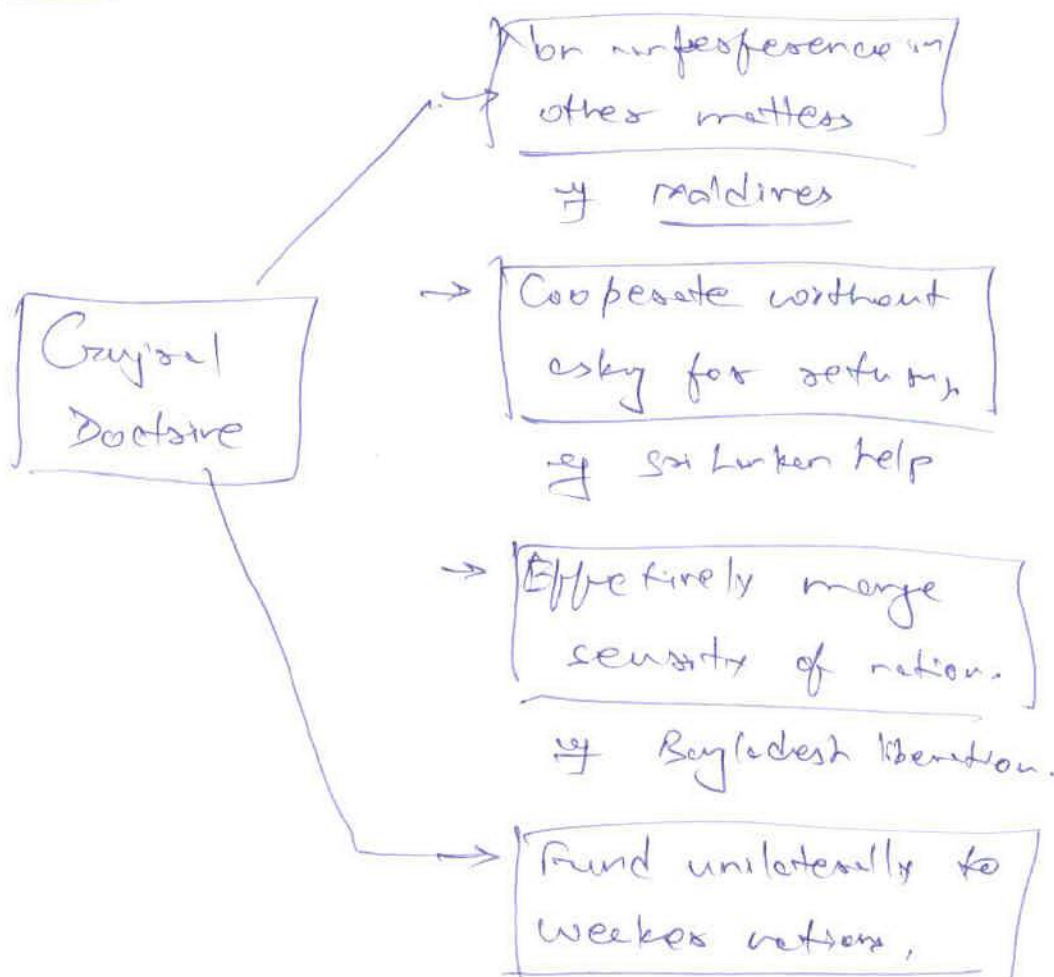 Gujral
Doctrine
Non interference in
other matters
eg Maldives
Cooperate without
asking for return,
eg Sri Lankan help
Effectively manage
security of nation.
eg Bangladesh liberation.
Fund unilaterally to
weaker nations,